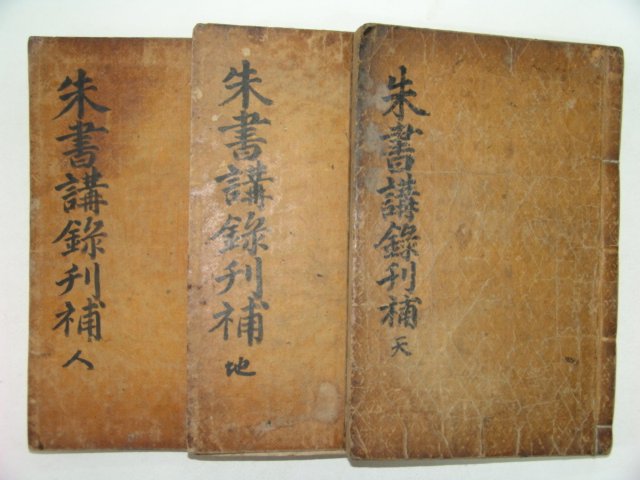 朱書講錄刊補
天
朱書講錄刊補
地
朱書講錄刊補
人